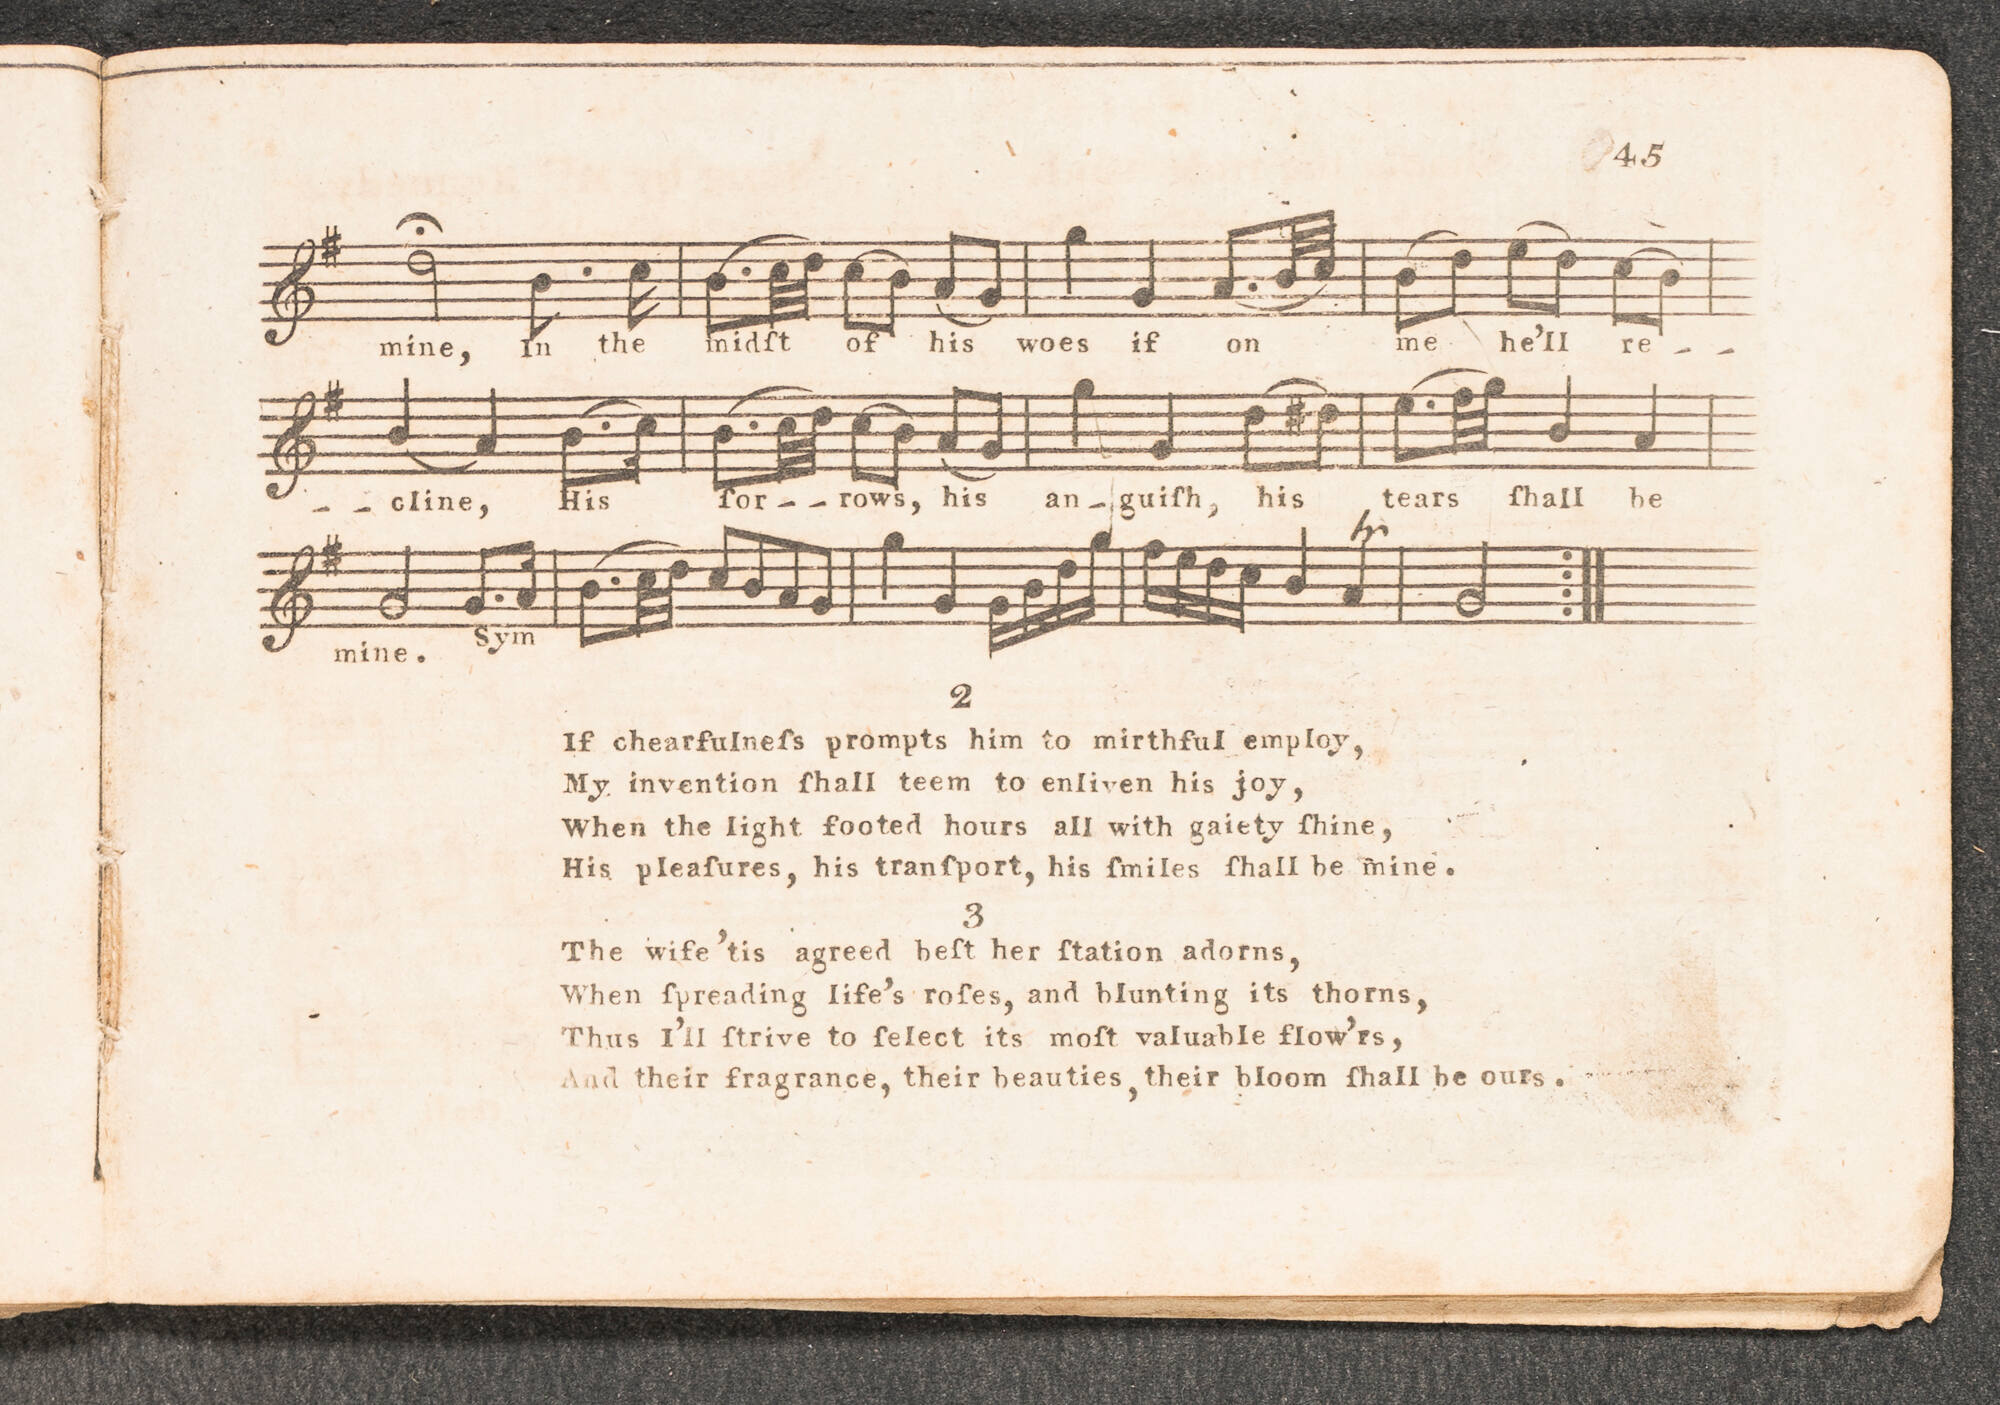 45
mine, In the midſt of his woes if on me he'll re - -
- - cline, His ſor - - rows, his an - guiſh, his tears ſhall be
tr
mine. Sym
2
If chearfulneſs prompts him to mirthful employ,
My invention ſhall teem to enliven his joy,
When the light footed hours all with gaiety ſhine,
His pleaſures, his tranſport, his ſmiles ſhall be mine.
3
The wife 'tis agreed beſt her ſtation adorns,
When ſpreading life's roſes, and blunting its thorns,
Thus I'll ſtrive to ſelect its moſt valuable flow'rs,
And their fragrance, their beauties, their bloom ſhall be ours.